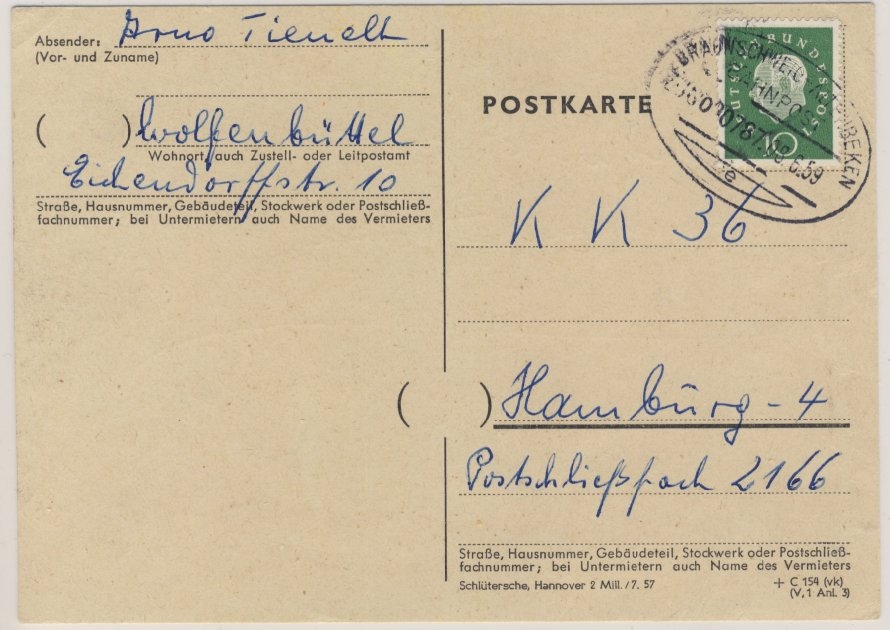 Absender: Arno Tienelt
(Vor- und Zuname)
( ) Wolfenbüttel
Wohnort, auch Zustell- oder Leitpostamt
Eichendorffstr. 10
Straße, Hausnummer, Gebäudeteil, Stockwerk oder Postschließ-
fachnummer; bei Untermietern auch Name des Vermieters
POSTKARTE
DEUTSCHE BUNDESPOST
10
BRAUNSCHWEIG - ALTENBEKEN
BAHNPOST
ZUG 0 10787 18.6.59
K K 36
( ) Hamburg - 4
Postschließfach 2166
Straße, Hausnummer, Gebäudeteil, Stockwerk oder Postschließ-
fachnummer; bei Untermietern auch Name des Vermieters
Schlütersche, Hannover 2 Mill. /7. 57
+ C 154 (vk)
(V, 1 Anl. 3)